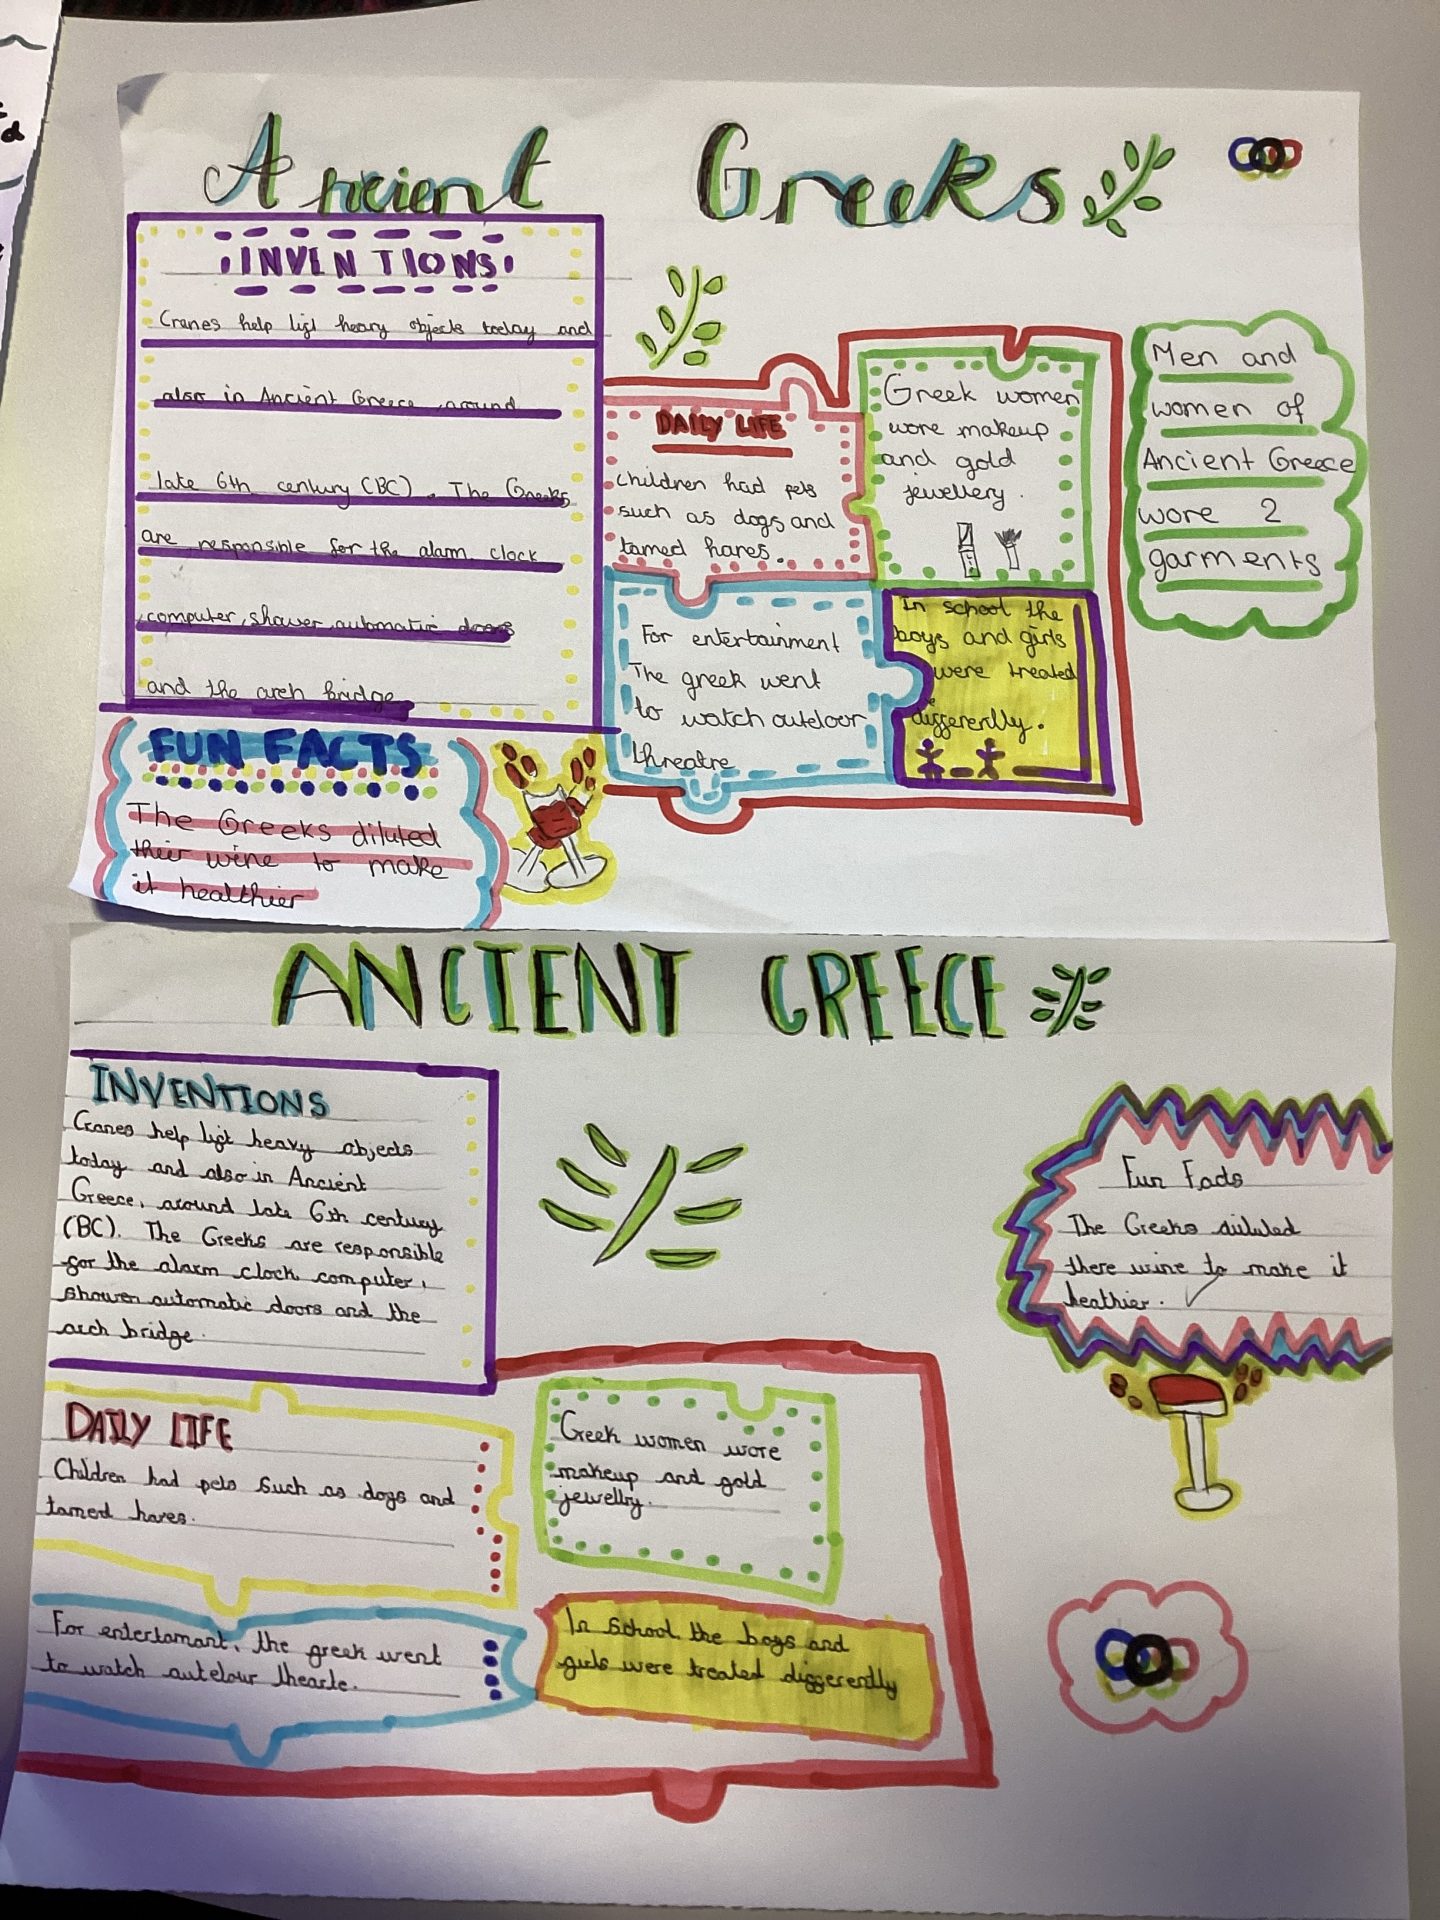 Ancient Greeks
INVENTIONS
Cranes help lift heavy objects today and
also in Ancient Greece, around
late 6th century (BC). The Greeks
are responsible for the alarm clock
, computer, shower, automatic doors
and the arch bridge
DAILY LIFE
children had pets
such as dogs and
tamed hares.
Greek women
wore makeup
and gold
jewellery.
Men and
women of
Ancient Greece
wore 2
garments
For entertainment
The greek went
to watch outdoor
threatre
In school the
boys and girls
were treated
differently.
FUN FACTS
The Greeks diluted
their wine to make
it healthier
ANCIENT GREECE
INVENTIONS
Cranes help lift heavy objects
today and also in Ancient
Greece, around late 6th century
(BC). The Greeks are responsible
for the alarm clock, computer,
shower automatic doors and the
arch bridge.
Fun Facts
The Greeks diluted
there wine to make it
heathier.
DAILY LIFE
Children had pets such as dogs and
tamed hares.
Greek women wore
makeup and gold
jewellry.
For entertamant, the greek went
to watch
In school the boys and
girls were treated differently